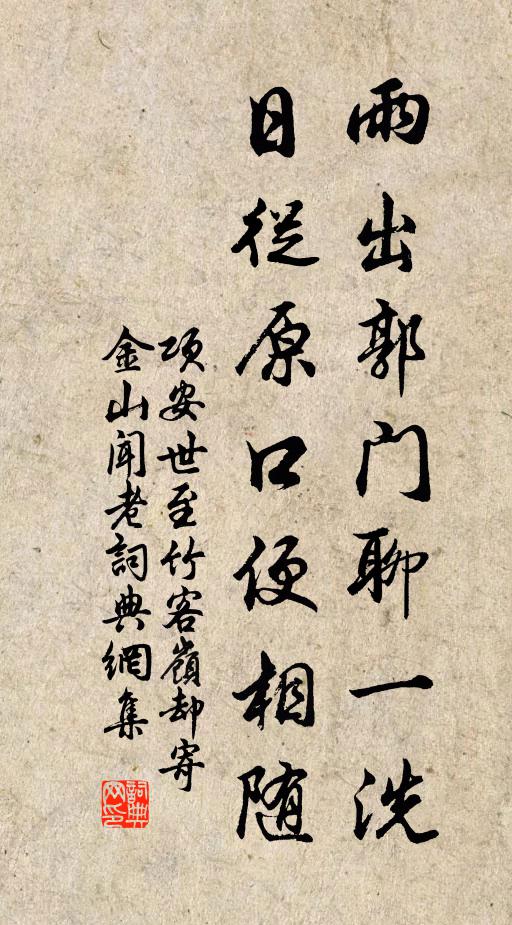 雨出郭門聊一洗
日從原口便相随
项安世至竹客嶺却寄
金山闻老詞典網集
詞典
网印